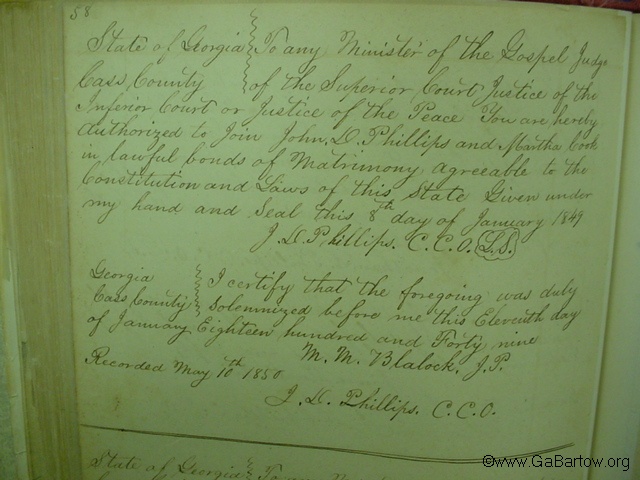 58
State of Georgia } To any Minister of the Gospel Judge
Cass County } of the Superior Court Justice of the
Inferior Court or Justice of the Peace You are hereby
Authorized to Join John, D. Phillips and Martha Cook
in lawful bonds of Matrimony agreeable to the
Constitution and Laws of this State Given under
my hand and Seal this 8th day of January 1849
J. D. Phillips. C.C.O. L.S.
Georgia } I certify that the foregoing was duly
Cass County } Solemnized before me this Eleventh day
of January Eighteen hundred and Forty nine
M. M. Blalock. J.P.
Recorded May 10th 1850
J. D. Phillips. C.C.O.
State of Georgia } To any
©www.GaBartow.org